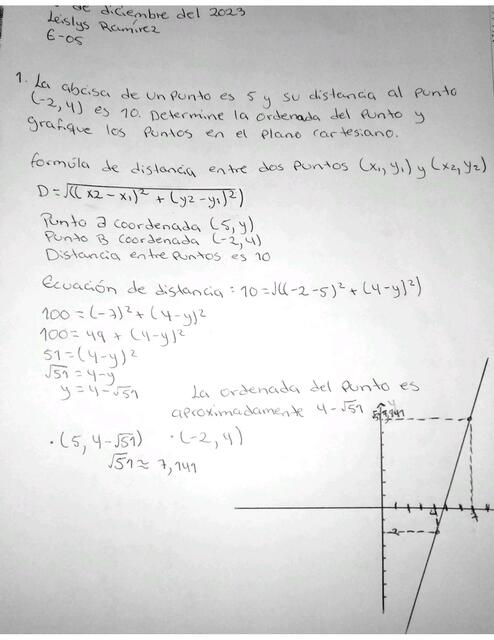 de diciembre del 2023
Leislys Ramírez
6-05
1. La abcisa de un punto es 5 y su distancia al punto
(-2,4) es 10. Determine la ordenada del punto y
grafique los puntos en el plano cartesiano.
formúla de distancia entre dos puntos (x₁, y₁) y (x₂, y₂)
D=√((x2-x₁)² + (y2-y₁)²)
Punto a coordenada (5,y)
Punto B coordenada (-2,4)
Distancia entre puntos es 10
Ecuación de distancia: 10=√((-2-5)²+(4-y)²)
100=(-7)²+(4-y)²
100=49+(4-y)²
51=(4-y)²
√51=4-y
y=4-√51
La ordenada del punto es
aproximadamente 4-√51
·(5,4-√51) ·(-2,4)
√51≈7,141